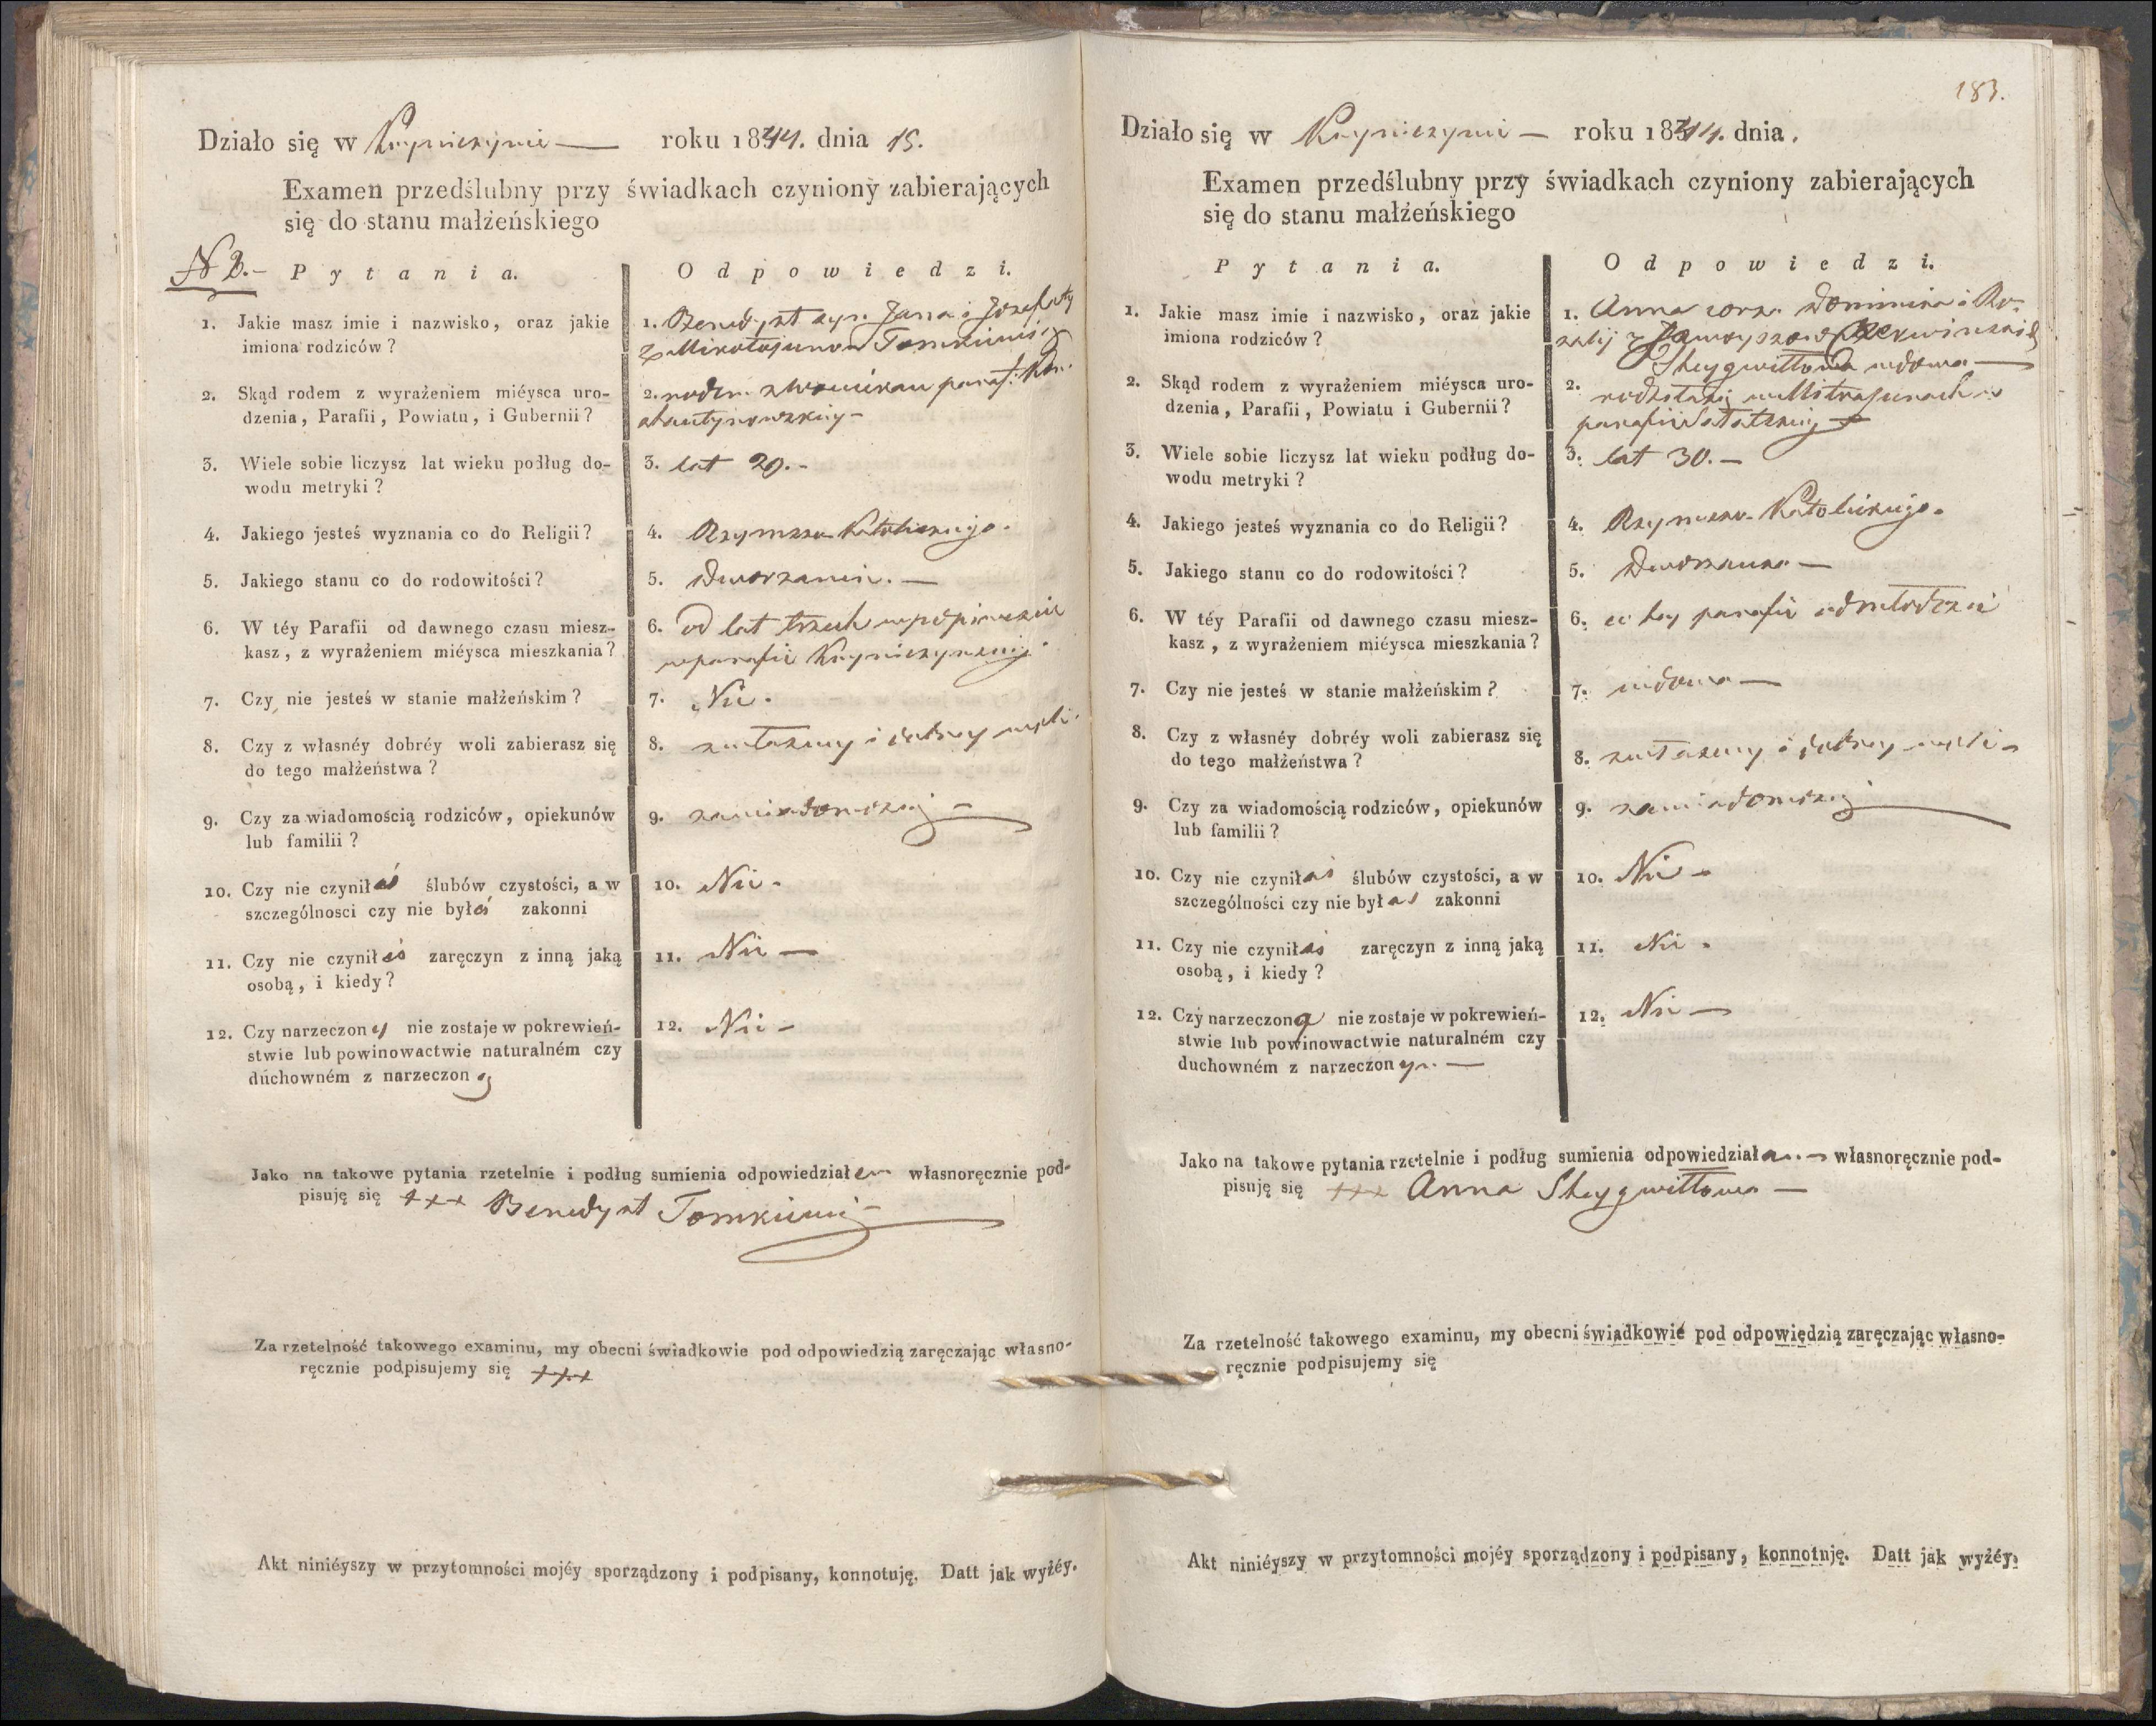 Działo się w Kryniczynie — roku 1844. dnia 15.
Examen przedślubny przy świadkach czyniony zabierających
się do stanu małżeńskiego
N 2.- Pytania. Odpowiedzi.
1. Jakie masz imie i nazwisko, oraz jakie
imiona rodziców?
1. Benedykt syn Jana i Jozefaty
z Mikołajunow Tomkiewicz
2. Skąd rodem z wyrażeniem miéysca uro-
dzenia, Parafii, Powiatu, i Gubernii?
2. rodem z paraf:
3. Wiele sobie liczysz lat wieku podług do-
wodu metryki?
3. lat 29.-
4. Jakiego jesteś wyznania co do Religii?
4. Rzymsko Katolickiego.
5. Jakiego stanu co do rodowitości?
5. Dworzanin. —
6. W téy Parafii od dawnego czasu miesz-
kasz, z wyrażeniem miéysca mieszkania?
6. od lat trzech
w parafii Krynickynskiej.
7. Czy nie jesteś w stanie małżeńskim?
7. Nie.
8. Czy z własnéy dobréy woli zabierasz się
do tego małżeństwa?
8. z własney i dobrey woli.
9. Czy za wiadomością rodziców, opiekunów
lub familii?
9. za wiadomością —
10. Czy nie czyniłeś ślubów czystości, a w
szczególnosci czy nie byłeś zakonni
10. Nie.
11. Czy nie czyniłeś zaręczyn z inną jaką
osobą, i kiedy?
11. Nie —
12. Czy narzeczony nie zostaje w pokrewień-
stwie lub powinowactwie naturalném czy
duchowném z narzeczoną
12. Nie -
Jako na takowe pytania rzetelnie i podług sumienia odpowiedziałem własnoręcznie pod-
pisuję się +++ Benedykt Tomkiewicz
Za rzetelność takowego examinu, my obecni świadkowie pod odpowiedzią zaręczając własno-
ręcznie podpisujemy się +++
Akt niniéyszy w przytomności mojéy sporządzony i podpisany, konnotuję. Datt jak wyżéy.
183.
Działo się w Kryniczynie — roku 1844. dnia.
Examen przedślubny przy świadkach czyniony zabierających
się do stanu małżeńskiego
Pytania. Odpowiedzi.
1. Jakie masz imie i nazwisko, oraz jakie
imiona rodziców?
1. Anna corka Dominika i Ro-
zalij z
wdowa —
2. Skąd rodem z wyrażeniem miéysca uro-
dzenia, Parafii, Powiatu i Gubernii?
2. w
parafii
3. Wiele sobie liczysz lat wieku podług do-
wodu metryki?
3. lat 30.—
4. Jakiego jesteś wyznania co do Religii?
4. Rzymsko Katolickiego.
5. Jakiego stanu co do rodowitości?
5. Dworzanka —
6. W téy Parafii od dawnego czasu miesz-
kasz, z wyrażeniem miéysca mieszkania?
6. w tey parafii od młodości
7. Czy nie jesteś w stanie małżeńskim?
7. wdowa —
8. Czy z własnéy dobréy woli zabierasz się
do tego małżeństwa?
8. z własney i dobrey woli -
9. Czy za wiadomością rodziców, opiekunów
lub familii?
9. za wiadomością
10. Czy nie czyniłaś ślubów czystości, a w
szczególności czy nie byłaś zakonni
10. Nie -
11. Czy nie czyniłaś zaręczyn z inną jaką
osobą, i kiedy?
11. Nie.
12. Czy narzeczona nie zostaje w pokrewień-
stwie lub powinowactwie naturalném czy
duchowném z narzeczonym. —
12. Nie —
Jako na takowe pytania rzetelnie i podług sumienia odpowiedziałam własnoręcznie pod-
pisuję się +++ Anna Skeygwiłłowa —
Za rzetelność takowego examinu, my obecni świadkowie pod odpowiedzią zaręczając własno-
ręcznie podpisujemy się
Akt niniéyszy w przytomności mojéy sporządzony i podpisany, konnotuję. Datt jak wyżéy.